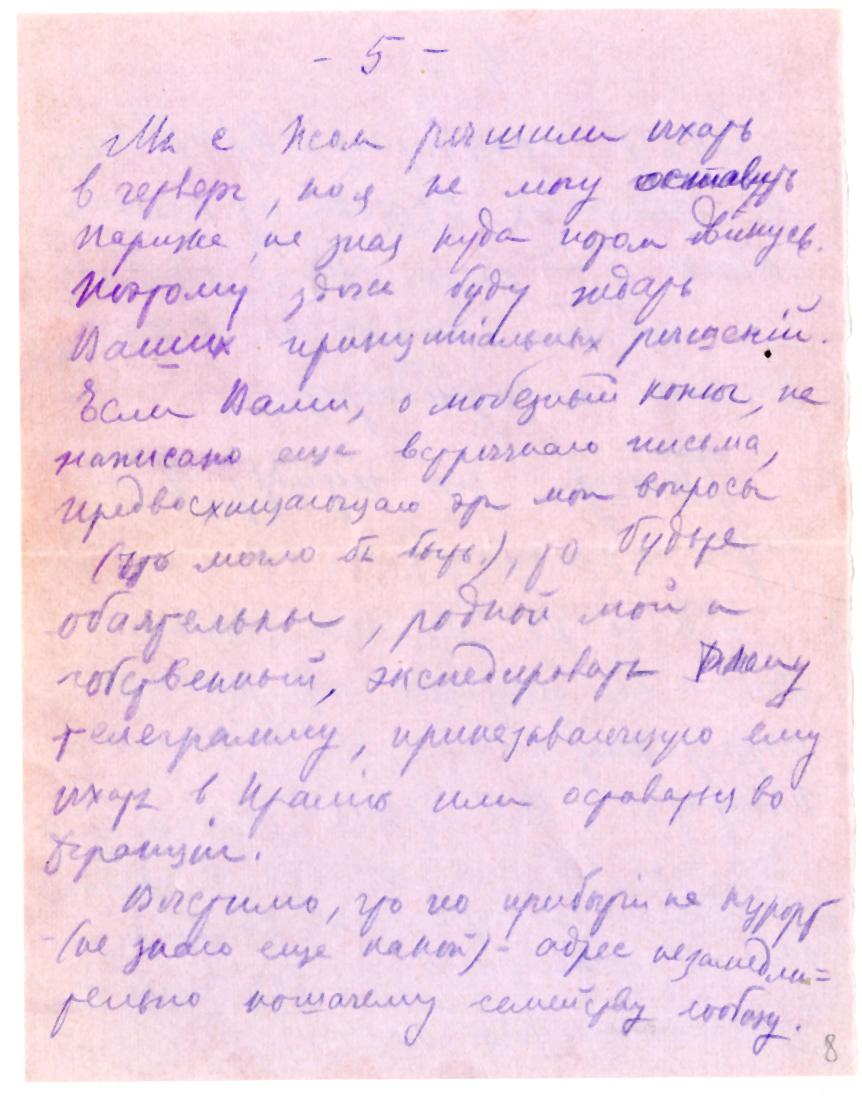 - 5 -
Мы с Жсом рѣшили ѣхать
в четверг, но я не могу оставить
Париже, не зная куда потом двинусь.
Поэтому здѣсь буду ждать
Ваших принципіальных рѣшеній.
Если Вами, о любезный конюх, не
написано еще встрѣчнаго письма,
предвосхищающаго эти мои вопросы
(что могло бы быть!), то будьте
обаятельны, родной мой и
собственный, экспедировать Дживу
телеграмму, приказывающую ему
ѣхать в Италію или оставаться во
Франціи.
Вѣстимо, что по прибытіи на курорт
(не знаю еще какой) - адрес незамедли=
тельно кошачему семейству сообщу.
8